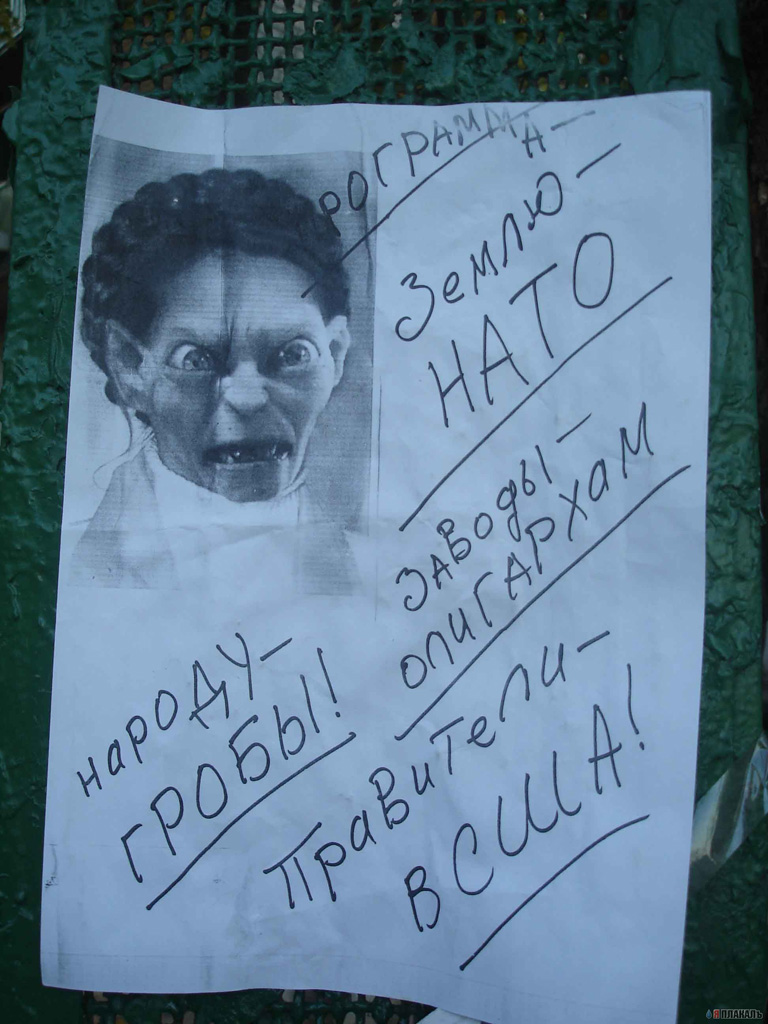 ПРОГРАММА-
Землю-
НАТО
заводы-
олигархам
народу-
ГРОБЫ!
Правители-
В США!
ЯПЛАКАЛЪ